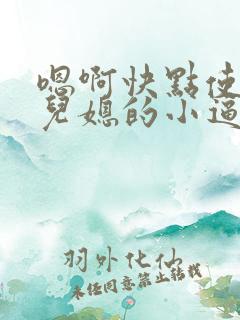 嗯啊快點使
兒媳的小逼
羽外化仙
未经同意禁止转载